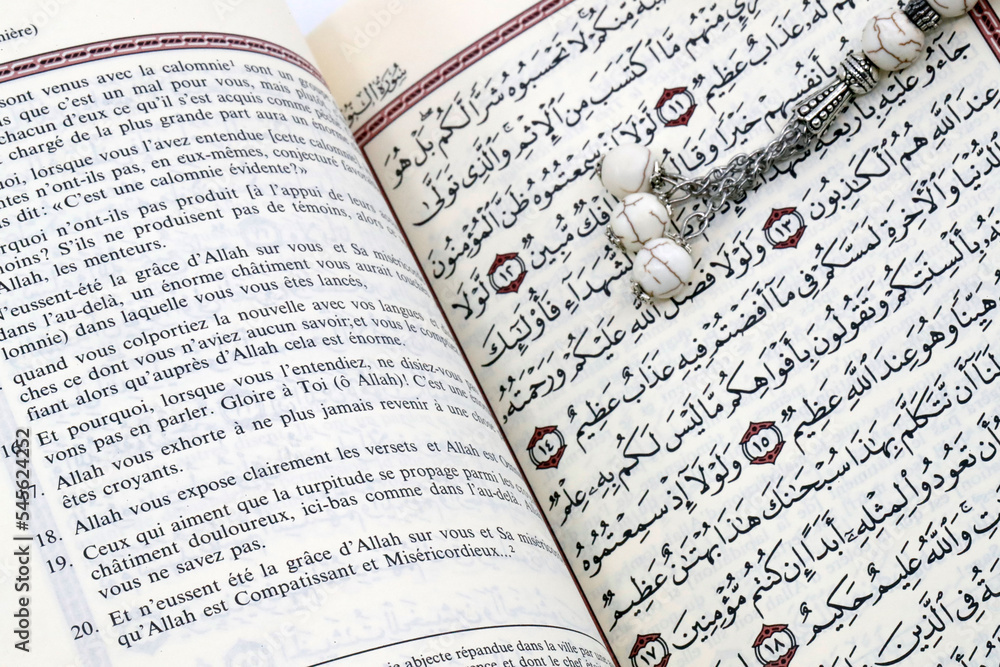 sont venus avec la calomnie¹ sont un
que c'est un mal pour vous, mais
chacun d'eux ce qu'il s'est acquis comme
chargé de la plus grande part aura un
lorsque vous l'avez entendue [cette calomnie
n'ont-ils pas, en eux-mêmes, conjecturé
dit: «C'est une calomnie évidente?»
n'ont-ils pas produit [à l'appui de leurs
S'ils ne produisent pas de témoins, alors
Allah, les menteurs.
n'eussent-été la grâce d'Allah sur vous et Sa
dans l'au-delà, un énorme châtiment vous aurait
lomnie) dans laquelle vous vous êtes lancés,
quand vous colportiez la nouvelle avec vos langues
ches ce dont vous n'aviez aucun savoir;et vous le
fiant alors qu'auprès d'Allah cela est énorme.
Et pourquoi, lorsque vous l'entendiez, ne disiez-vous
vons pas en parler. Gloire à Toi (ô Allah)! C'est une
Allah vous exhorte à ne plus jamais revenir à une
êtes croyants.
18. Allah vous expose clairement les versets et Allah est
19. Ceux qui aiment que la turpitude se propage parmi les
châtiment douloureux, ici-bas comme dans l'au-delà.
vous ne savez pas.
20. Et n'eussent été la grâce d'Allah sur vous et Sa
qu'Allah est Compatissant et Miséricordieux...²
abjecte répandue dans la ville par
et dont le chef
مِنكُمْ لَا تَحْسَبُوهُ شَرًّا لَّكُم بَلْ هُوَ
مِنْهُم مَّا اكْتَسَبَ مِنَ الْإِثْمِ وَالَّذِي تَوَلَّىٰ
مِنْهُمْ لَهُ عَذَابٌ عَظِيمٌ ١١ لَّوْلَا إِذْ سَمِعْتُمُوهُ ظَنَّ الْمُؤْمِنُونَ
بِأَنفُسِهِمْ خَيْرًا وَقَالُوا إِفْكٌ مُّبِينٌ ١٢ لَّوْلَا
جَاءُو عَلَيْهِ بِأَرْبَعَةِ بِالشُّهَدَاءِ فَأُولَٰئِكَ
عِندَ اللَّهِ هُمُ الْكَاذِبُونَ ١٣ وَلَوْلَا فَضْلُ اللَّهِ عَلَيْكُمْ وَرَحْمَتُهُ
الدُّنْيَا وَالْآخِرَةِ لَمَسَّكُمْ فِي مَا أَفَضْتُمْ فِيهِ عَذَابٌ عَظِيمٌ ١٤
بِأَلْسِنَتِكُمْ وَتَقُولُونَ بِأَفْوَاهِكُم مَّا لَيْسَ لَكُم بِهِ عِلْمٌ
هَيِّنًا وَهُوَ عِندَ اللَّهِ عَظِيمٌ ١٥ وَلَوْلَا إِذْ سَمِعْتُمُوهُ
لَنَا أَن نَّتَكَلَّمَ بِهَٰذَا سُبْحَانَكَ هَٰذَا بُهْتَانٌ عَظِيمٌ
أَن تَعُودُوا لِمِثْلِهِ أَبَدًا إِن كُنتُم مُّؤْمِنِينَ ١٧
وَاللَّهُ عَلِيمٌ حَكِيمٌ ١٨
فِي الَّذِينَ
Adobe Stock | #545624252